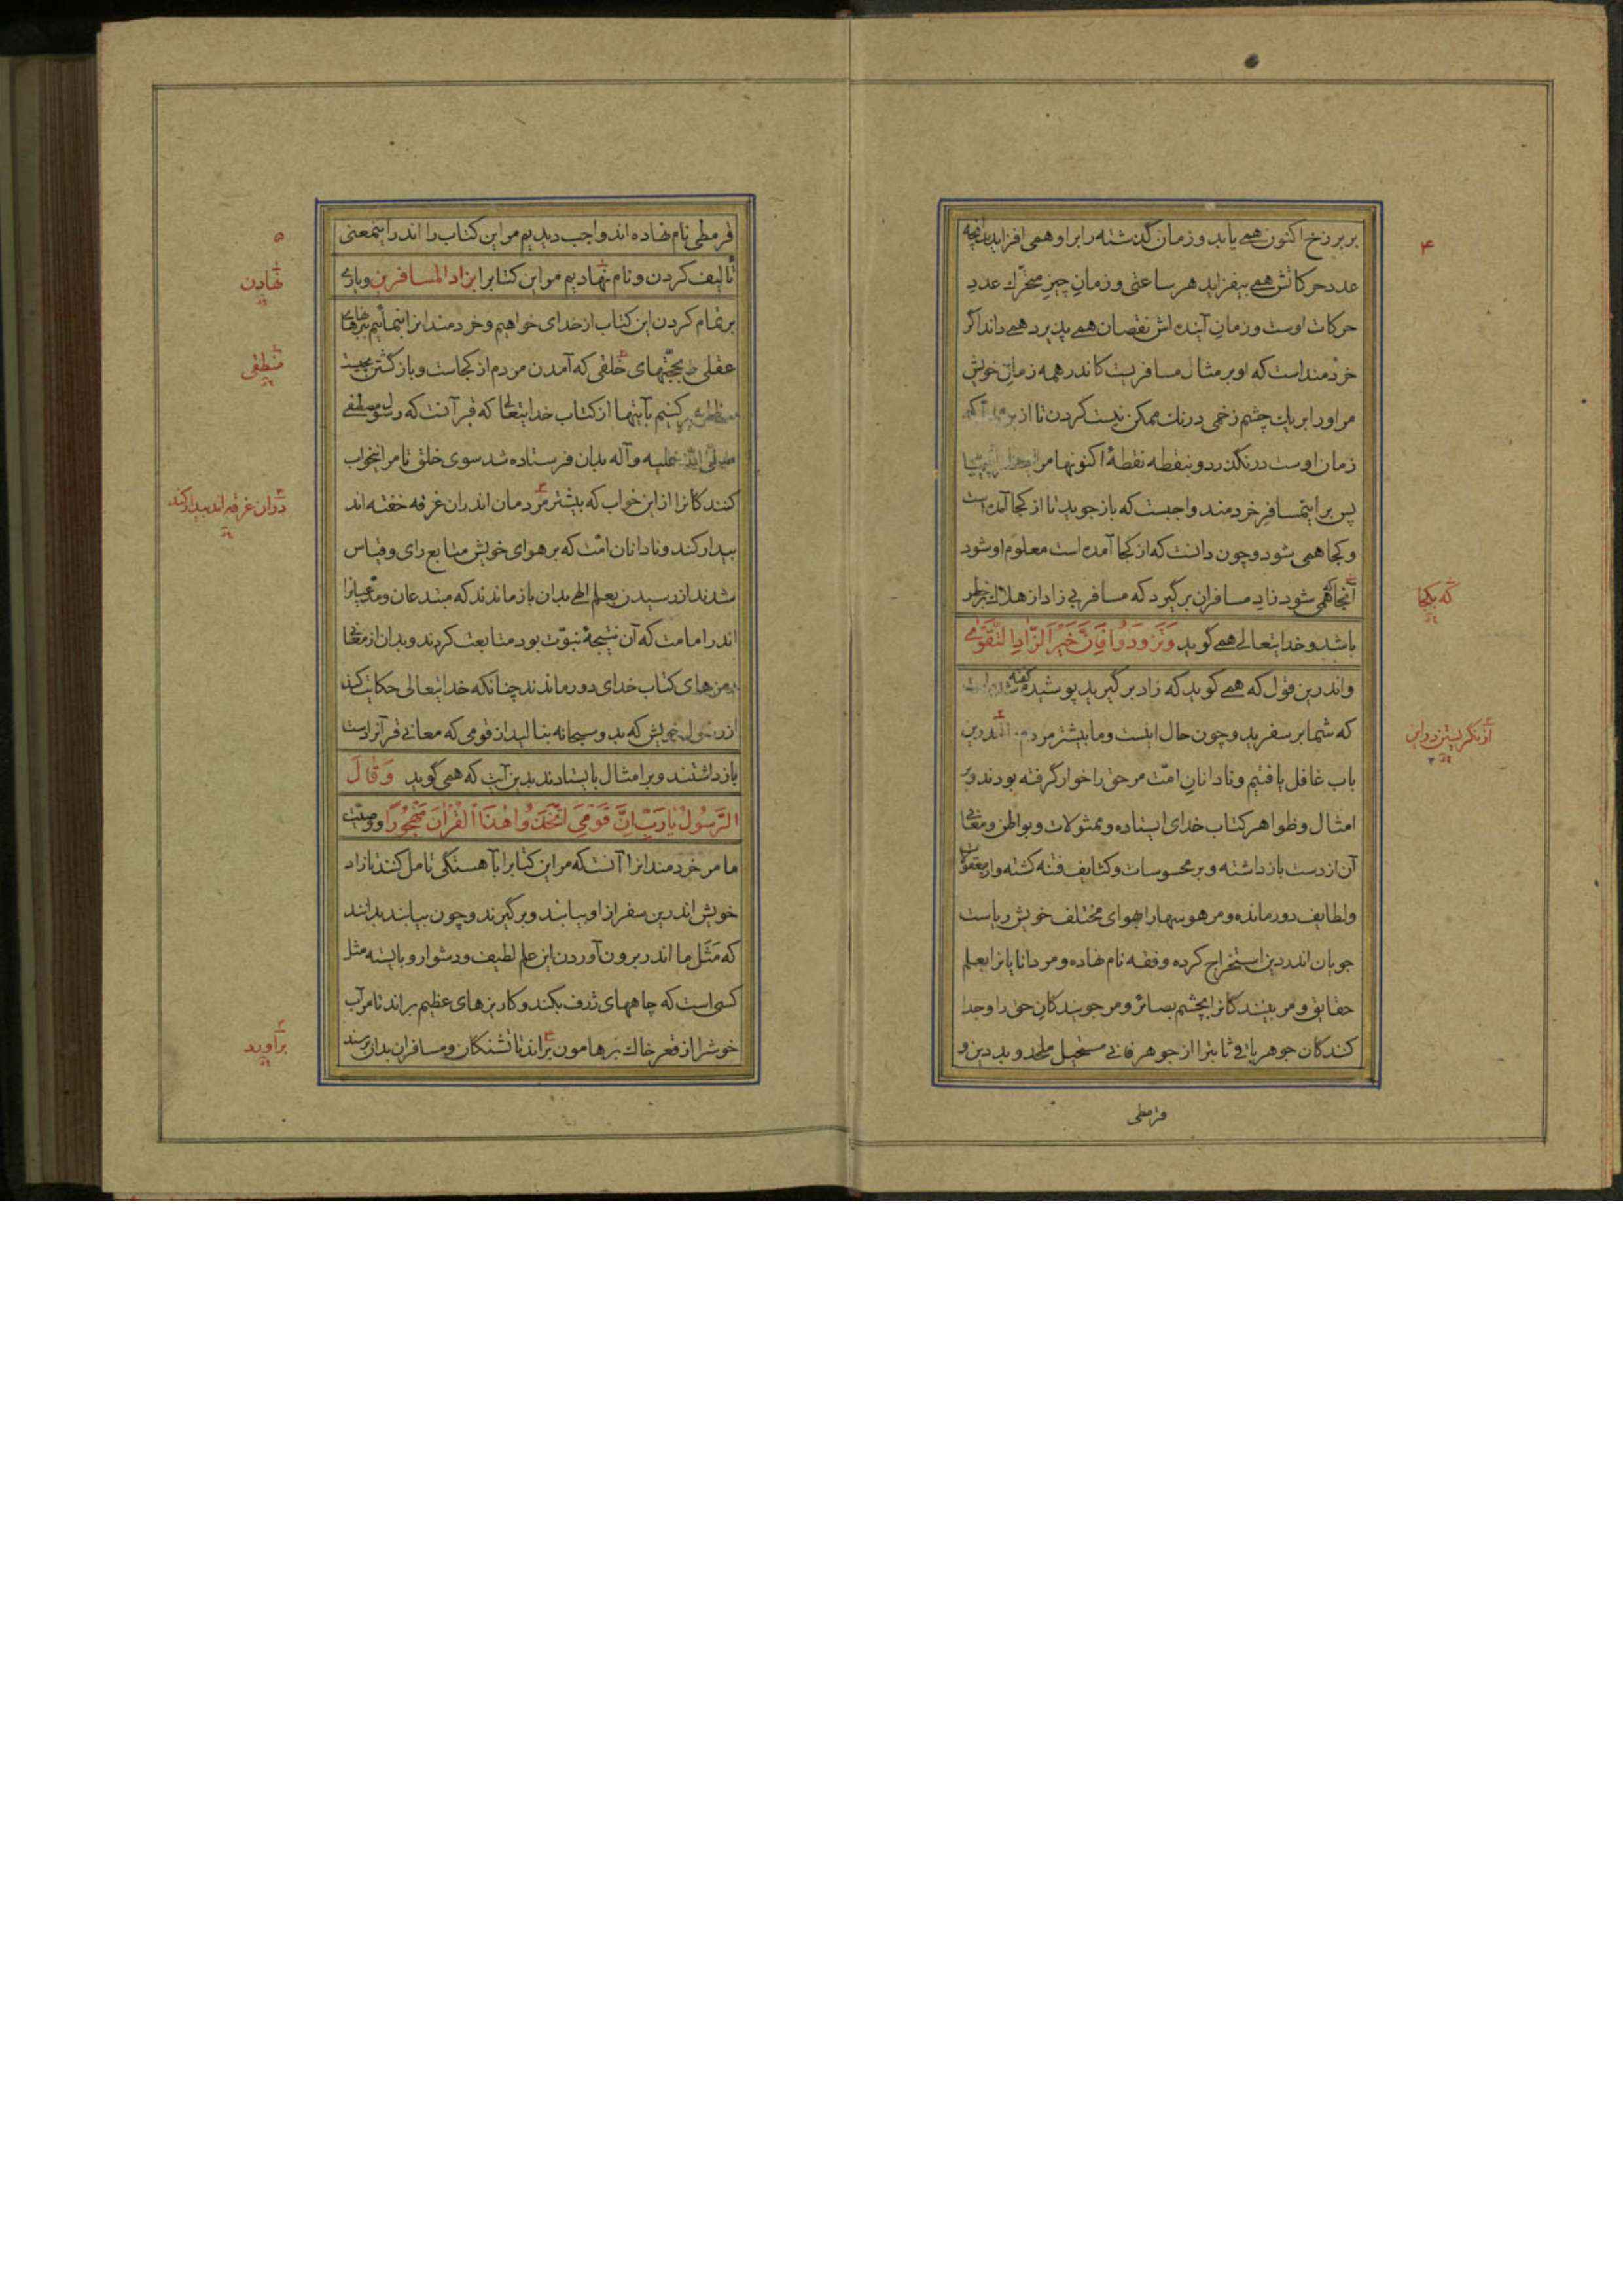 ۴
بربرزخ اکنون همے یابد و زمان گذشته را بر او همی افزاید بدانچه
عدد حرکاتش همے بیفزاید هر ساعتی و زمانِ چیزِ متحرّك عددِ
حرکات اوست و زمانِ آینده اش نقصان همے پذیرد همے داند اگر
خردمند است که او بر مثال مسافریست کاندر همه زمانِ خویش
مر او را بر یك چشم زخمی درنك ممکن نیست کردن تا از
زمان اوست درنگذرد و بنقطه نقطهٔ اکنونها مر
پس بر اینمسافرِ خردمند واجبست که باز جوید تا از کجا آمده است
و کجا همی شود و چون دانست که از کجا آمده است معلوم او شود
آنجا که همی شود زادِ مسافران برگیرد که مسافر بی زاد از هلاك بر خطر
باشد و خدایتعالے همے گوید وَتَزَوَّدُوا فَاِنَّ خَیْرَ الزّادِ التَّقْوٰی
و اندرین قول که همے گوید که زاد برگیرید پوشیده گفته شده است
که شما بر سفرید و چون حال اینست و ما بیشتر مردم
باب غافل یافتیم و نادانانِ امّت مر حق را خوار گرفته بودند و بر
امثال و ظواهر کتاب خدای ایستاده و ممثولات و بواطن و معانی
آن از دست باز داشته و بر محسوسات و کثایف فتنه گشته و از معقولات
و لطایف دور مانده و مر هوسها را بهوای مختلف خویش ریاست
جویان اندر دین استخراج کرده و فقه نام نهاده و مر دانایانرا بعلم
حقایق و مر بینندگانرا بچشم بصائر و مر جویندگانِ حق را و جدا
کنندگان جوهر باقی ثابترا از جوهر فانی مستحیل ملحد و بد دین و
قرمطی
که بکجا
از نگریستن در این
۵
قرمطی نام نهاده اند واجب دیدیم مر این کتاب را اندر اینمعنی
تألیف کردن و نام نهادیم مر این کتابرا بزاد المسافرین و یاری
بر تمام کردن این کتاب از خدای خواهیم و خردمندانرا بنمائیم ببرهانهای
عقلی و بحجّتهای خلقی که آمدن مردم از کجاست و بازگشتن بچیست
کنیم بآیتها از کتاب خدایتعالی که قرآنست که رسول مصطفی
صلّی الله علیه و آله بدان فرستاده شد سوی خلق تا مر اینخواب
کنندگانرا از این خواب که بیشتر مردمان اندران غرقه خفته اند
بیدار کند و نادانان امّت که بر هوای خویش متابع رای و قیاس
شدند از رسیدن بعلم الهی بدان باز ماندند که مبتدعان و مدّعیانرا
اندر امامت که آن نتیجهٔ نبوّت بود متابعت کردند و بدان از معانی
رمزهای کتاب خدای دور ماندند چنانکه خدایتعالی حکایت کند
از رسول خویش که بدو سبحانه بنالید از قومی که معانی قرآنرا دست
باز داشتند و بر امثال بایستادند بدین آیت که همی گوید وَ قالَ
الرَّسُولُ یٰا رَبِّ اِنَّ قَوْمِیَ اتَّخَذُوا هٰذَا الْقُرْاٰنَ مَهْجُوراً و وصیّت
ما مر خردمندانرا آنست که مر این کتابرا بآهستگی تامل کنند تا زاد
خویش اندرین سفر از او بیابند و برگیرند و چون بیابند بدانند
که مَثَل ما اندر برون آوردن این علم لطیف و دشوار و بایسته مثل
کسی است که چاههای ژرف بکند و کاریزهای عظیم براند تا مر آب
خوشرا از قعر خاك بر هامون براند تا تشنگان و مسافران بدان برسند
نهادن
منطقی
در آن غرقه اند بیدار کند
برآورد